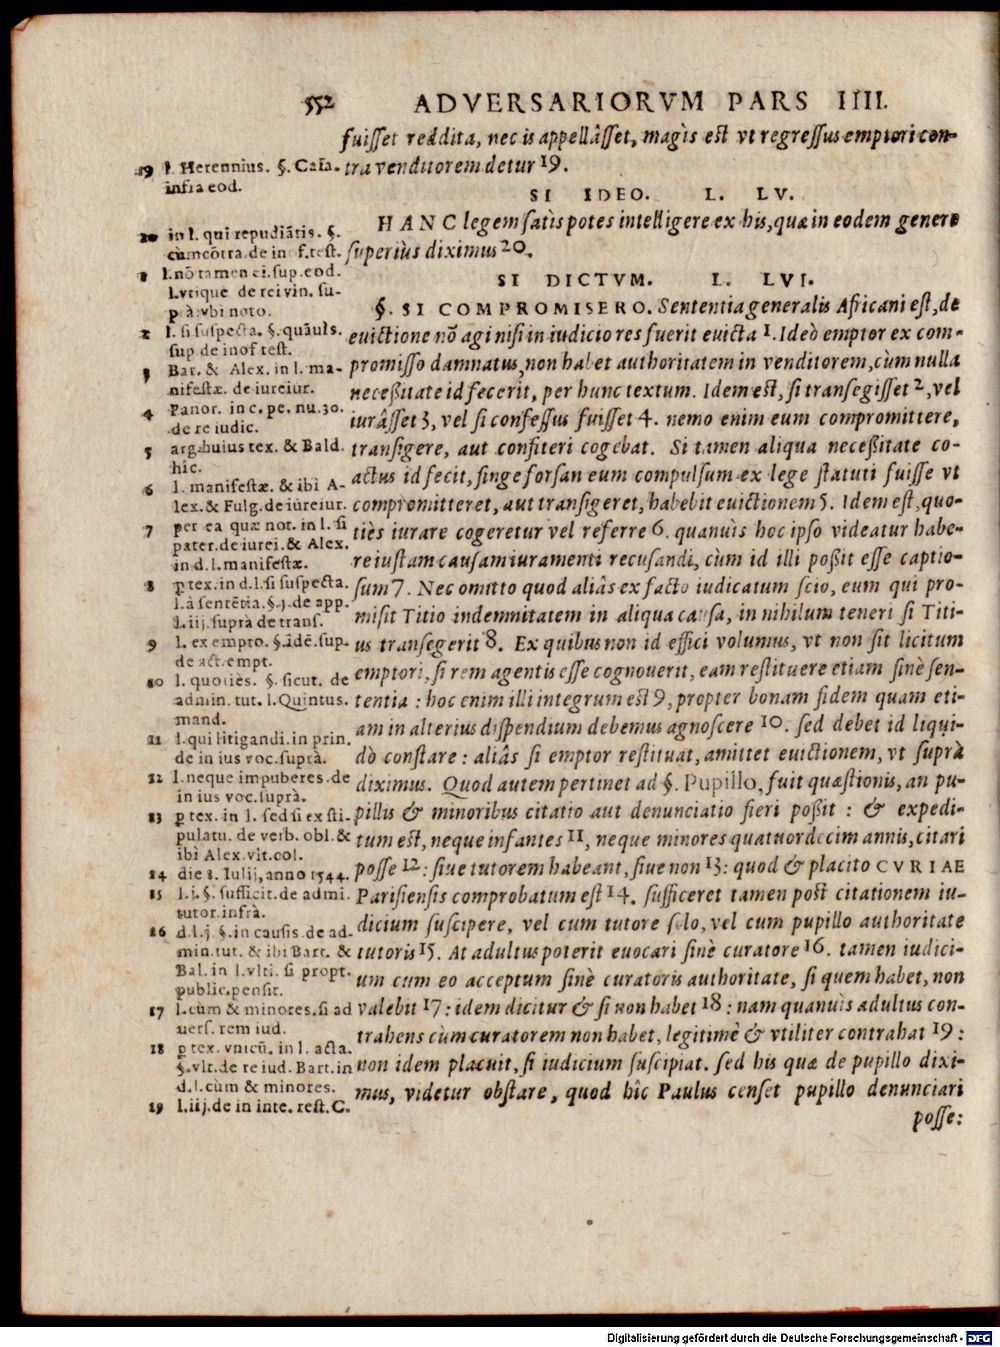 552 ADVERSARIORVM PARS IIII.
fuisset reddita, nec is appellâsset, magis est vt regressus emptori con-
tra venditorem detur 19.
SI IDEO. L. LV.
HANC legem satìs potes intelligere ex his, quæ in eodem genere
superiùs diximus 20.
SI DICTVM. L. LVI.
§. SI COMPROMISERO. Sententia generalis Africani est, de
euictione nō agi nisi in iudicio res fuerit euicta 1. Ideò emptor ex com-
promisso damnatus, non habet authoritatem in venditorem, cùm nulla
necessitate id fecerit, per hunc textum. Idem est, si transegisset 2, vel
iurâsset 3, vel si confessus fuisset 4. nemo enim eum compromittere,
transigere, aut confiteri cogebat. Si tamen aliqua necessitate co-
actus id fecit, finge forsan eum compulsum ex lege statuti fuisse vt
compromitteret, aut transigeret, habebit euictionem 5. Idem est, quo-
tiès iurare cogeretur vel referre 6. quanuìs hoc ipso videatur habe-
re iustam causam iuramenti recusandi, cùm id illi possit esse captio-
sum 7. Nec omitto quod aliâs ex facto iudicatum scio, eum qui pro-
misit Titio indemnitatem in aliqua causa, in nihilum teneri si Titi-
us transegerit 8. Ex quibus non id effici volumus, vt non sit licitum
emptori, si rem agentis esse cognouerit, eam restituere etiam sinè sen-
tentia : hoc enim illi integrum est 9, propter bonam fidem quam eti-
am in alterius dispendium debemus agnoscere 10. sed debet id liqui-
dò constare : aliâs si emptor restituat, amittet euictionem, vt suprà
diximus. Quod autem pertinet ad §. Pupillo, fuit quæstionis, an pu-
pillis & minoribus citatio aut denunciatio fieri possit : & expedi-
tum est, neque infantes 11, neque minores quatuordecim annis, citari
posse 12 : siue tutorem habeant, siue non 13 : quod & placito CVRIAE
Parisiensis comprobatum est 14. sufficeret tamen post citationem iu-
dicium suscipere, vel cum tutore solo, vel cum pupillo authoritate
tutoris 15. At adultus poterit euocari sinè curatore 16. tamen iudici-
um cum eo acceptum sinè curatoris authoritate, si quem habet, non
valebit 17 : idem dicitur & si non habet 18 : nam quanuìs adultus con-
trahens cùm curatorem non habet, legitimè & vtiliter contrahat 19 :
non idem placuit, si iudicium suscipiat. sed his quæ de pupillo dixi-
mus, videtur obstare, quod hîc Paulus censet pupillo denunciari
posse:
19 l. Herennius. §. Caia.
infrà eod.
20 in l. qui repudiātis. §.
cùm cōtra. de inof. test.
1 l. nō tamen ei. sup. eod.
l. vtique de rei vin. su-
p à vbi noto.
2 l. si suspecta. §. quāuIs.
sup de inof test.
3 Bar. & Alex. in l. ma-
nifestæ. de iureiur.
4 Panor. in c. pe. nu. 30.
de re iudic.
5 arg. huius tex. & Bald.
hîc.
6 l. manifestæ. & ibi A-
lex. & Fulg. de iureiur.
7 per ea quæ not. in l. si
pater. de iurei. & Alex.
in d. l. manifestæ.
8 p tex. in d. l. si suspecta.
l. à sentētia. §. j. de app.
l. iij. suprà de trans.
9 l. ex empto. §. idē. sup.
de act. empt.
10 l. quotiès. §. sicut. de
admin. tut. l. Quintus.
mand.
11 l. qui litigandi. in prin.
de in ius voc. suprà.
12 l. neque impuberes. de
in ius voc. suprà.
13 p tex. in l. sed si ex sti-
pulatu. de verb. obl. &
ibi Alex. vlt. col.
14 die 8. Iulij, anno 1544.
15 l. j. §. sufficit. de admi.
tutor. infrà.
16 d. l. j. §. in causis. de ad-
min. tut. & ibi Bart. &
Bal. in l. vlti. si propt.
public. pensit.
17 l. cùm & minores. si ad
uers. rem iud.
18 p tex. vnicū. in l. acta.
§. vlt. de re iud. Bart. in
d. l. cùm & minores.
19 l. iij. de in inte. rest. C.
Digitalisierung gefördert durch die Deutsche Forschungsgemeinschaft - DFG